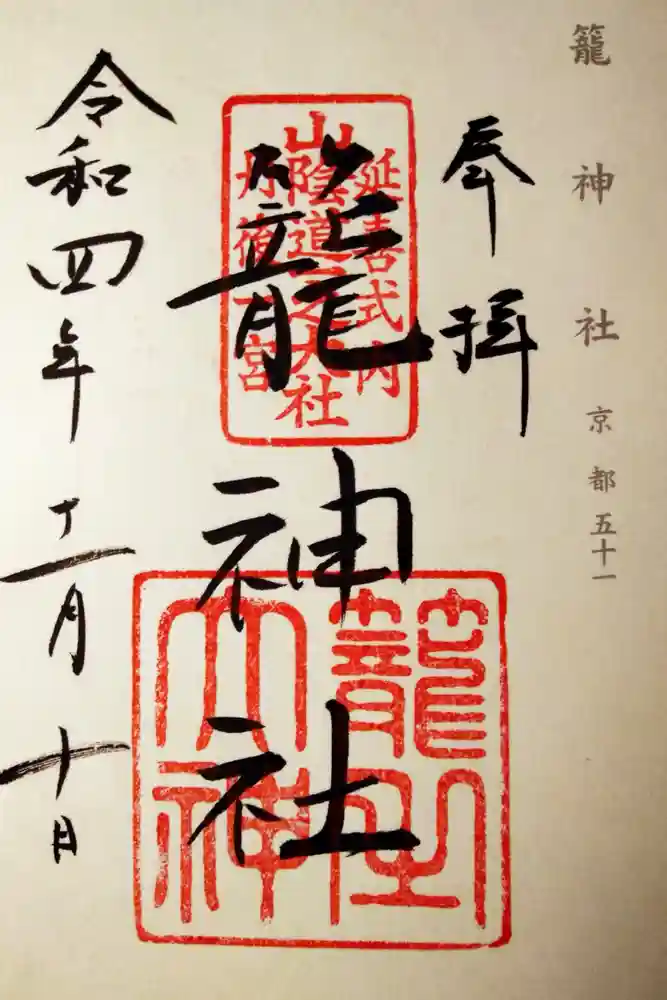 籠神社 京都五十一
奉拝
延喜式内
山陰道之大社
丹後一宮
籠神社
大神
令和四年十一月十日